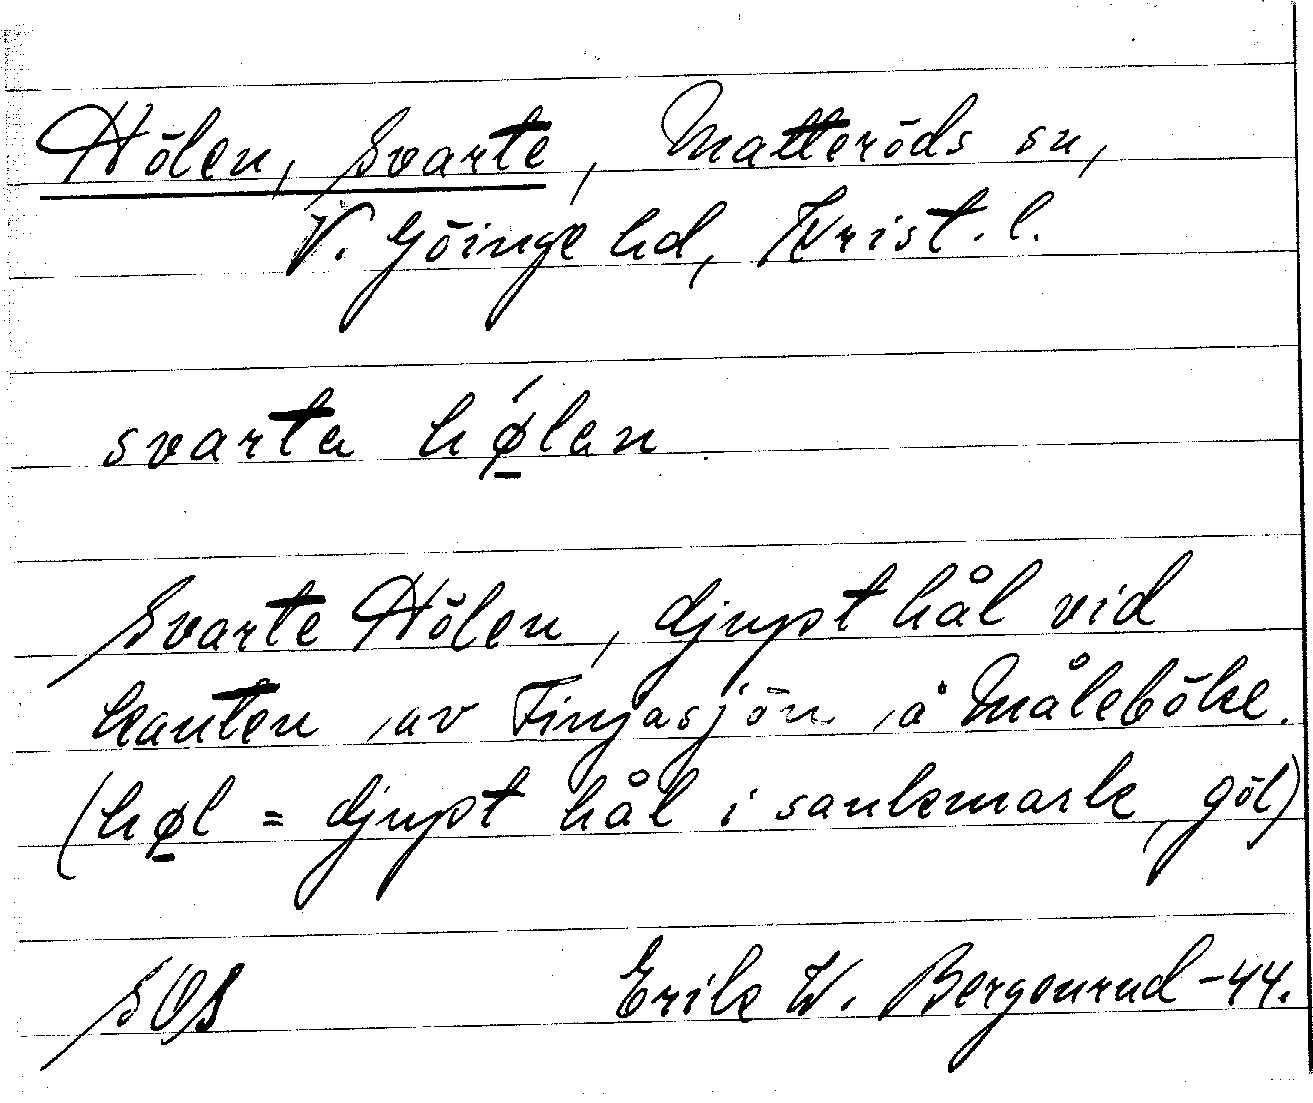 Hölen, Svarte, Matteröds sn,
V. Göinge hd, Krist. l.
svarta hǿ̱lan
Svarte Hölen, djupt hål vid
kanten av Finjasjön å Måleböke.
(hø̱l = djupt hål i sankmark, göl)
SOS Erik W. Bergenrud -44.